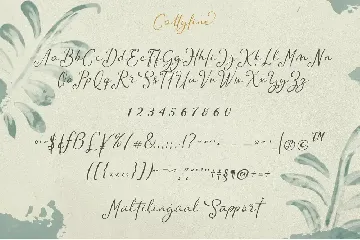 Collyline
Aa Bb Cc Dd Ee Ff Gg Hh Ii Jj Kk Ll Mm Nn
Oo Pp Qq Rr Ss Tt Uu Vv Ww Xx Yy Zz
1 2 3 4 5 6 7 8 6 0
Multilingual Support